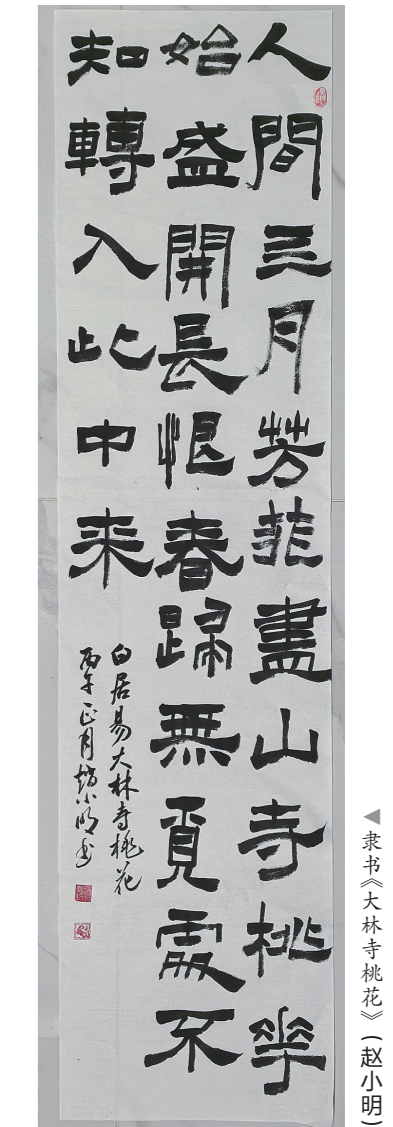 人間三月芳菲盡山寺桃華
始盛開長恨春歸無覓處不
知轉入此中来
白居易大林寺桃花
丙午正月趙小明書
◀隶书《大林寺桃花》(赵小明)